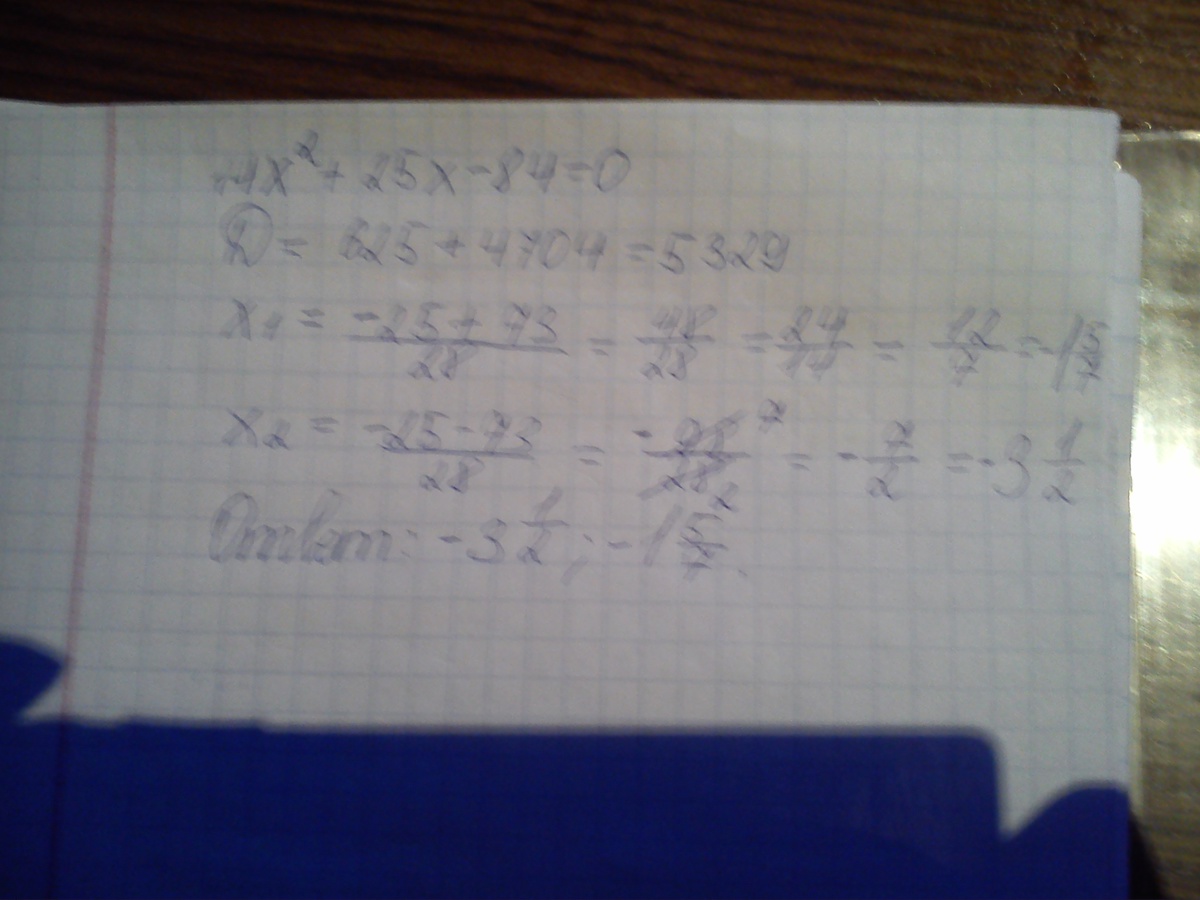 14x² + 25x - 84 = 0
D = 625 + 4704 = 5329
x₁ = (-25 + 73)/28 = 48/28 = 24/14 = 12/7 = -1 5/7
x₂ = (-25 - 73)/28 = -98/28 7 2 = -7/2 = -3 1/2
Ответ: -3 1/2; -1 5/7.